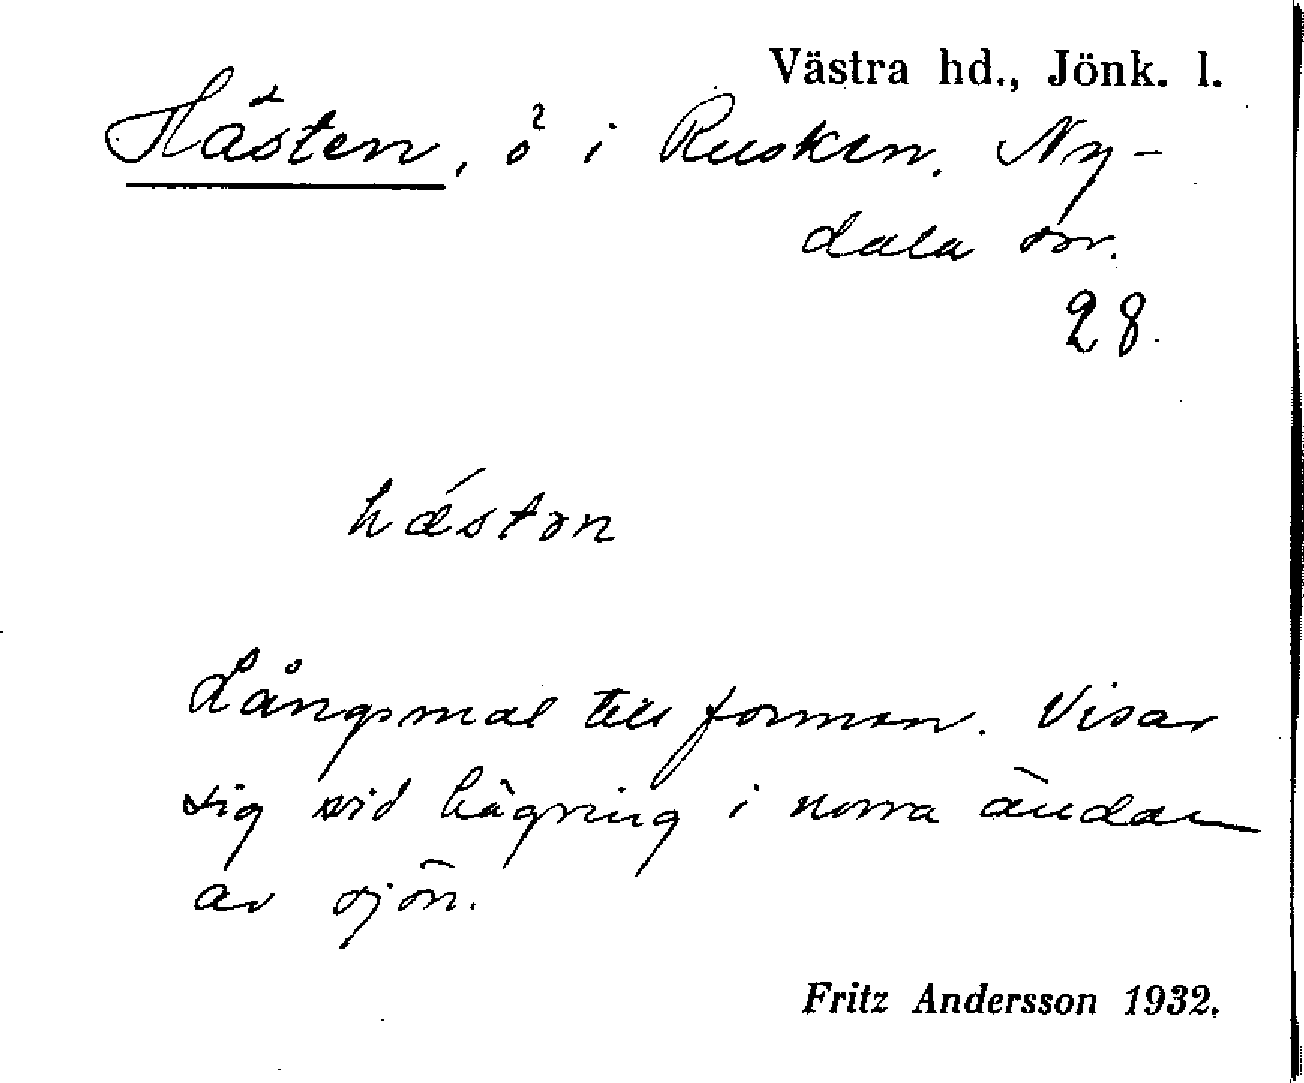 Västra hd., Jönk. l.
Hästen, ö i Rusken. Ny-
dala sn.
28.
hástən
Långsmal till formen. Visar
sig vid hägring i norra ändan
av sjön.
Fritz Andersson 1932.